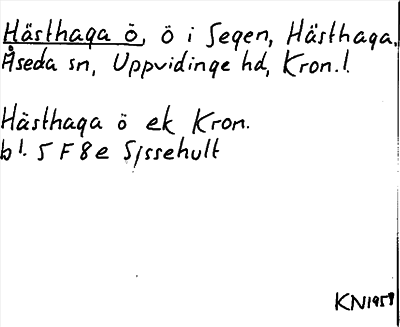 Hästhaga ö, ö i Segen, Hästhaga,
Åseda sn, Uppvidinge hd, Kron.l.
Hästhaga ö ek Kron.
bl. 5 F 8 e Sjssehult
KN1959